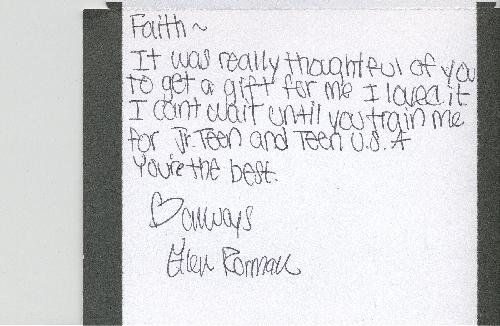 Faith~
It was really thoughtful of you
to get a gift for me I loved it
I can't wait until you train me
for Jr. Teen and Teen U.S.A
You're the best.
♡ always